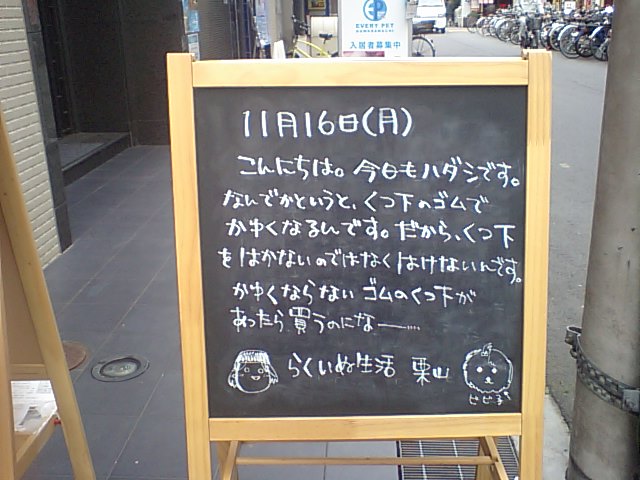 EVERY PET
入居者募集中
11月16日(月)
こんにちは。今日もハダシです。
なんでかというと、くつ下のゴムで
かゆくなるんです。だから、くつ下
をはかないのではなくはけないんです。
かゆくならないゴムのくつ下が
あったら買うのになー……
らくいぬ生活 栗山